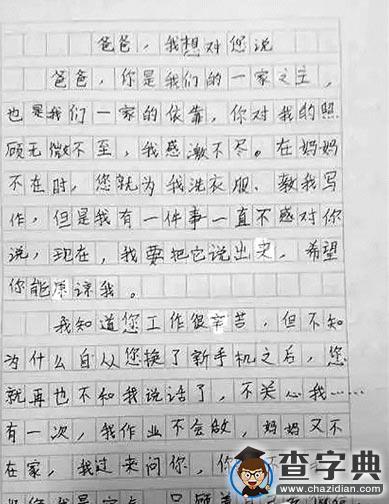 爸爸，我想对您说
爸爸，你是我们的一家之主，
也是我们一家的依靠，你对我的照
顾无微不至，我感激不尽。在妈妈
不在时，您就为我洗衣服、教我写
作，但是我有一件事一直不感对你
说，现在，我要把它说出史，希望
你能原谅我。
我知道您工作很辛苦，但不知
为什么自从您换了新手机之后，您
就再也不和我说话了，不关心我……
有一次，我作业不会做，妈妈又不
在家，我过来问你，你
只顾着
查字典
www.chazidian.com